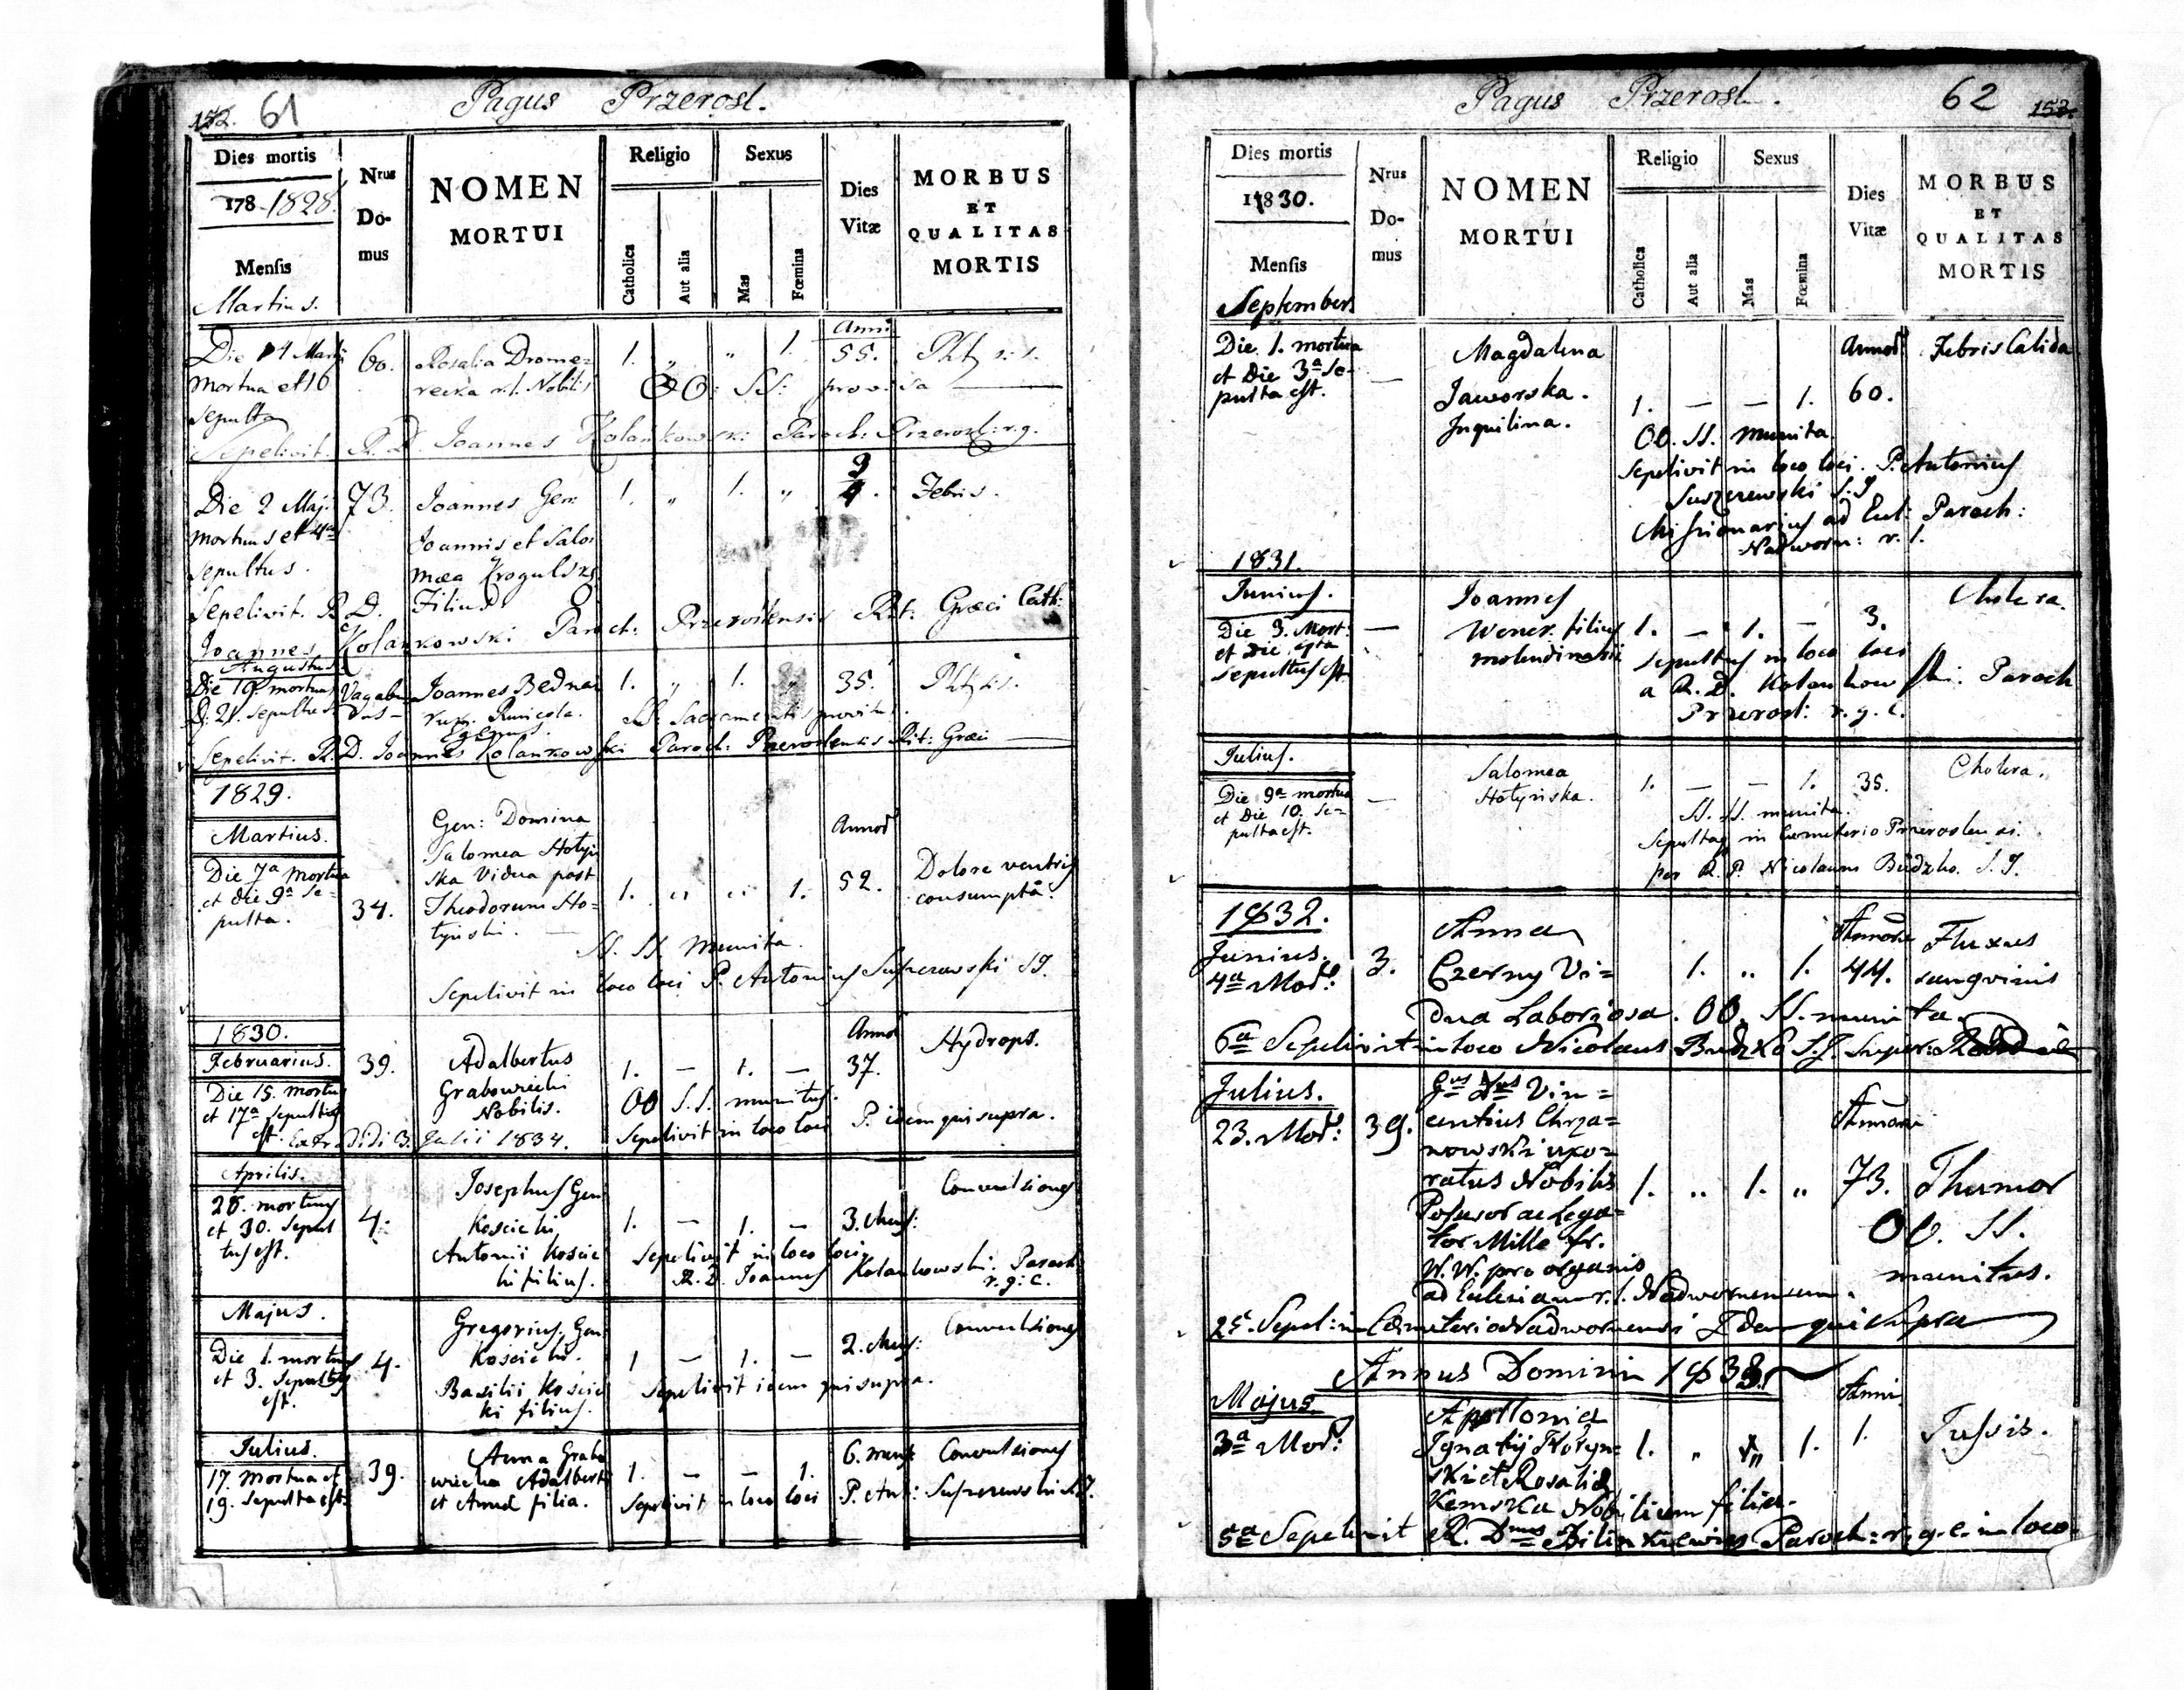 152. 61 Pagus Przerosl.
Dies mortis
178 1828.
Mensis
Martius.
Nrus
Do-
mus
NOMEN
MORTUI
Religio
Catholica
Aut alia
Sexus
Mas
Fœmina
Dies
Vitæ
MORBUS
ET
QUALITAS
MORTIS
Anni
Die 14 Martij 60. Rosalia Drome= 1. „ „ 1. 55.
mortua et 16 recka r.l. Nobilis OO: SS: provisa
sepulta
Sepelivit. R. D. Joannes Kolankowski Paroch: Przerosl: r.g.
Die 2 Maj. 73. Joannes Gen: 1. „ 1. „ Febris.
mortuus et 4a Joannis et Salo:
sepultus. mæa
Filius
Sepelivit. R. D.
Joannes Kolankowski Paroch: Przeroslensis Rit: Græci Cath:
Augustus
Die 19. mortuus Vagabun Joannes Bednar 1. „ 1. „ 35.
D. 21. sepultus dus SS: Sacramentis provitus.
Sepelivit. R. D. Joannes Kolankowski Paroch: Przeroslensis Rit: Græci
1829.
Martius.
Die 7a mortua
et die 9a se=
pulta.
34.
Gen: Domina
Salomea Hotyń
ska Vidua post
Theodorum Ho=
tyński.
1. „ „ 1.
Annor
52.
Dolore ventris
consumpta.
SS. SS. Munita.
Sepelivit in loco loci P. Antonius Suszerewski SJ.
1830.
Februarius.
Die 15. mortuus
et 17a sepultus
est. Extradidi 3. Julii 1834.
39.
Adalbertus
Grabowiecki
Nobilis.
1. — 1. —
Annor
37.
Hydrops.
OO S.S. munitus.
Sepelivit in loco loci P. idem qui supra.
Aprilis.
28. mortuus
et 30. sepul
tus est.
4.
Josephus Gen
Koscicki
Antonii Koscic
ki filius.
1. — 1. — 3. Mens: Convulsiones
Sepelivit in loco loci
R. D. Joannes Kolankowski. Paroch
r. g: c.
Majus.
Die 1. mortuus
et 3. sepultus
est.
4.
Gregorius, Gen
Koscicki.
Basilii Koscic
ki filius.
1 — 1. — 2. Mens: Convulsiones
Sepelivit idem qui supra.
Julius.
17. mortua et
19. sepulta est.
39.
Anna Grabo
wiecka Adalberti
et Annæ filia.
1. — — 1. 6. mens: Convulsiones
Sepelivit in loco loci P. Ant: Suszerewski S.J.
Pagus Przerosl. 62 153.
Dies mortis
1830.
Mensis
September
Nrus
Do-
mus
NOMEN
MORTUI
Religio
Catholica
Aut alia
Sexus
Mas
Fœmina
Dies
Vitæ
MORBUS
ET
QUALITAS
MORTIS
Die 1. mortua
et Die 3a se=
pulta est.
—
Magdalena
Jaworska.
Inquilina.
1. — — 1.
Annor
60.
Febris Calida
OO. SS. munita.
Sepelivit in loco loci. P. Antonius
Suszerewski S.J
Missionarius ad Eccl: Paroch:
Nadworn: r. l.
1831.
Junius.
Die 3. Mort:
et Die 4pta
sepultus est
—
Joannes
Wener. filius
molendinarii
1. — 1. — 3. Cholera.
sepultus in loco loci
a R. D. Kolankowski. Paroch
Przerosl: r. g. c.
Julius.
Die 9a mortua
et Die 10. se=
pulta est.
—
Salomea
Hotyńska.
1. — — 1. 35. Cholera.
SS. SS. munita.
Sepulta in Cœmeterio Przeroslensi.
per R. P. Nicolaum Budzko. S. J.
1832.
Junius.
4a Mor:
3.
Anna
Czerny Vi=
dua Laboriosa.
1. „ 1.
Annor
44.
Fluxus
sangvinis
OO. SS. munita.
6a Sepelivit in loco Nicolaus Budzko S.J. Super:
Julius.
23. Mor:
39.
Gus Dus Vin=
centius Chrza=
nowski uxo=
ratus Nobilis
Possesor ac Lega=
tor Mille fr.
W. W. pro organis
ad Eclesiam r. l. Nadwornensem.
1. „ 1. „
Annor
73.
Thumor
OO. SS.
munitus.
25. Sepel: in Cœmeterio Nadwornensi Idem qui supra
Annus Dominin 1833.
Majus.
3a Mor:
Apollonia
Ignatij Hotyn=
ski et Rosalia
Kemska Nobilium filia.
1. „ „ 1.
Anni
1.
Tussis.
5a Sepelivit R. Dnus Bilinkiewicz Paroch: r. g. c. in loco